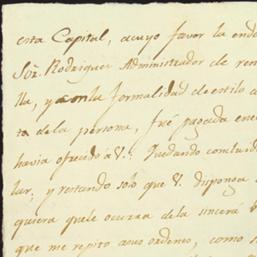 esta Capital, acuyo favor la endo
Sör. Rodriguez Administrador de ren
lla, y con la formalidad de estilo a
ta de la persona, fué pagada en e
havia ofrecido á V.: Quedando concluid
lar; y restando solo que V. disponga
quiera que le ocurra de la sincera
que me repito a sus ordenes, como